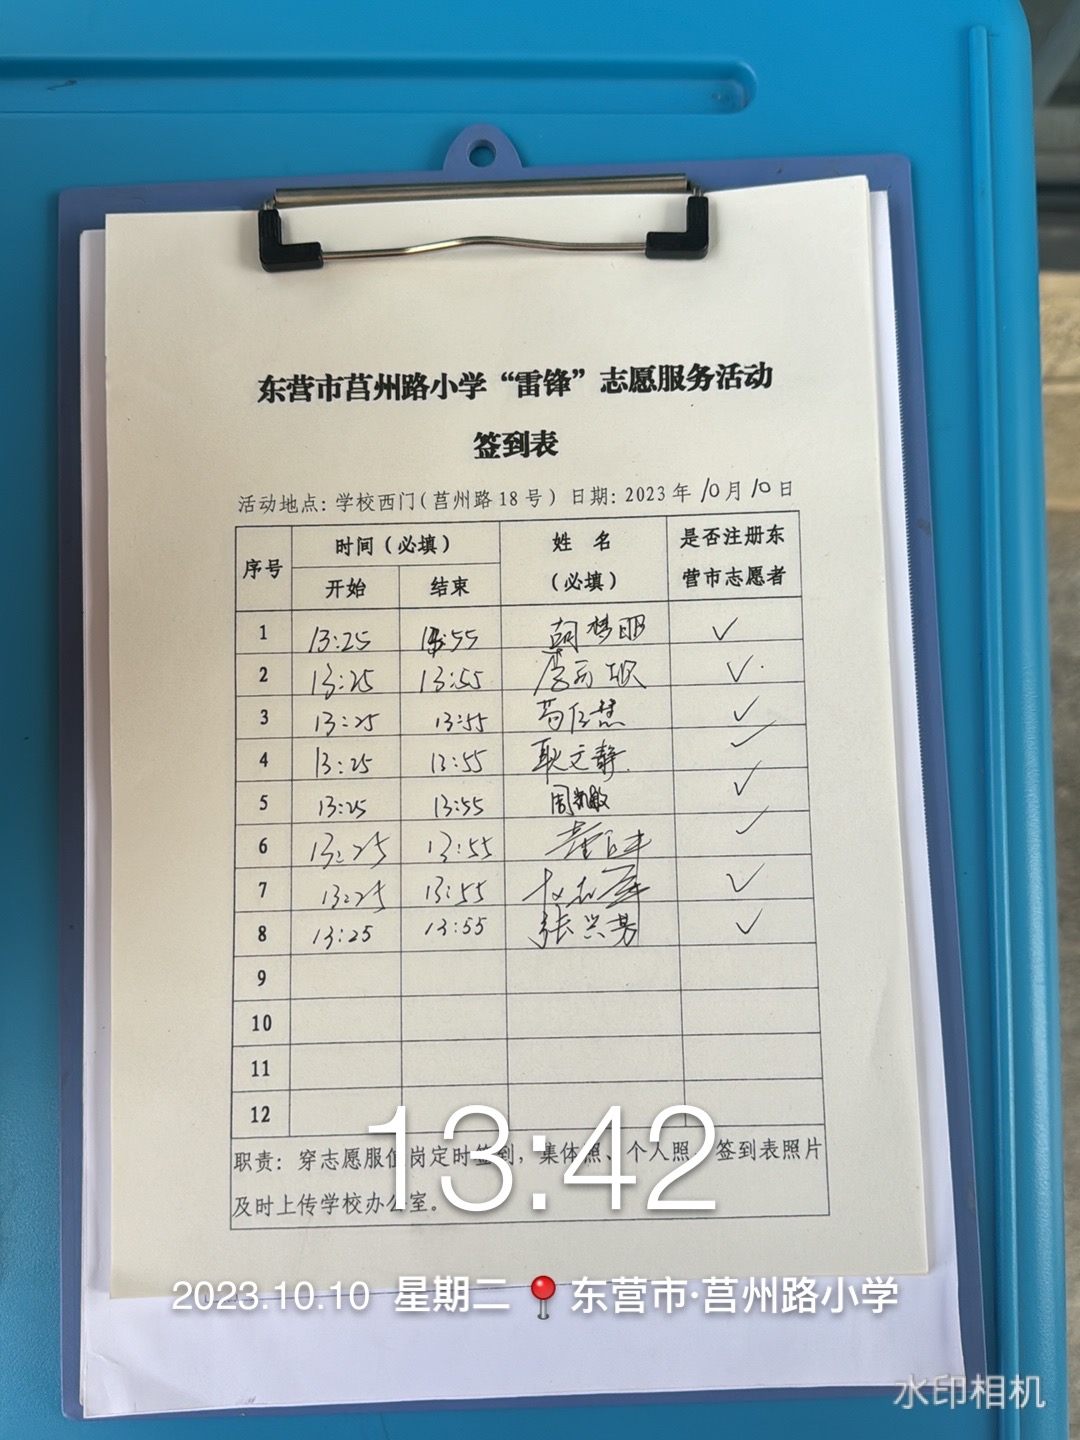 东营市莒州路小学“雷锋”志愿服务活动
签到表
活动地点：学校西门（莒州路18号）日期：2023年10月10日
序号 时间（必填） 姓 名（必填） 是否注册东营市志愿者
开始 结束
1 13:25 13:55 ✓
2 13:25 13:55 ✓
3 13:25 13:55 ✓
4 13:25 13:55 耿文静 ✓
5 13:25 13:55 ✓
6 13:25 13:55 ✓
7 13:25 13:55 ✓
8 13:25 13:55 张兴芳 ✓
9
10
11
12
职责：穿志愿服值岗定时签到，集体照、个人照、签到表照片
及时上传学校办公室。
13:42
2023.10.10 星期二 东营市·莒州路小学
水印相机